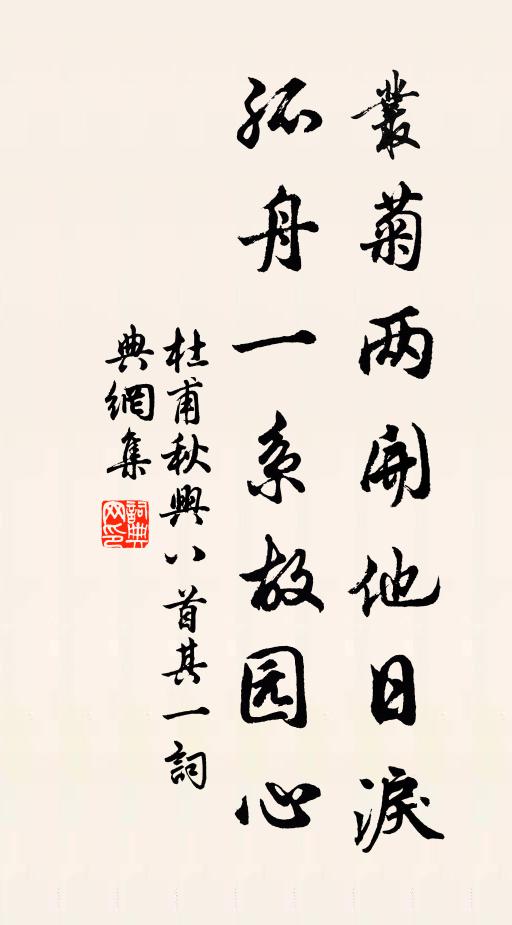 叢菊两開他日淚
孤舟一系故园心
杜甫秋興八首其一詞
典網集
詞典
网印